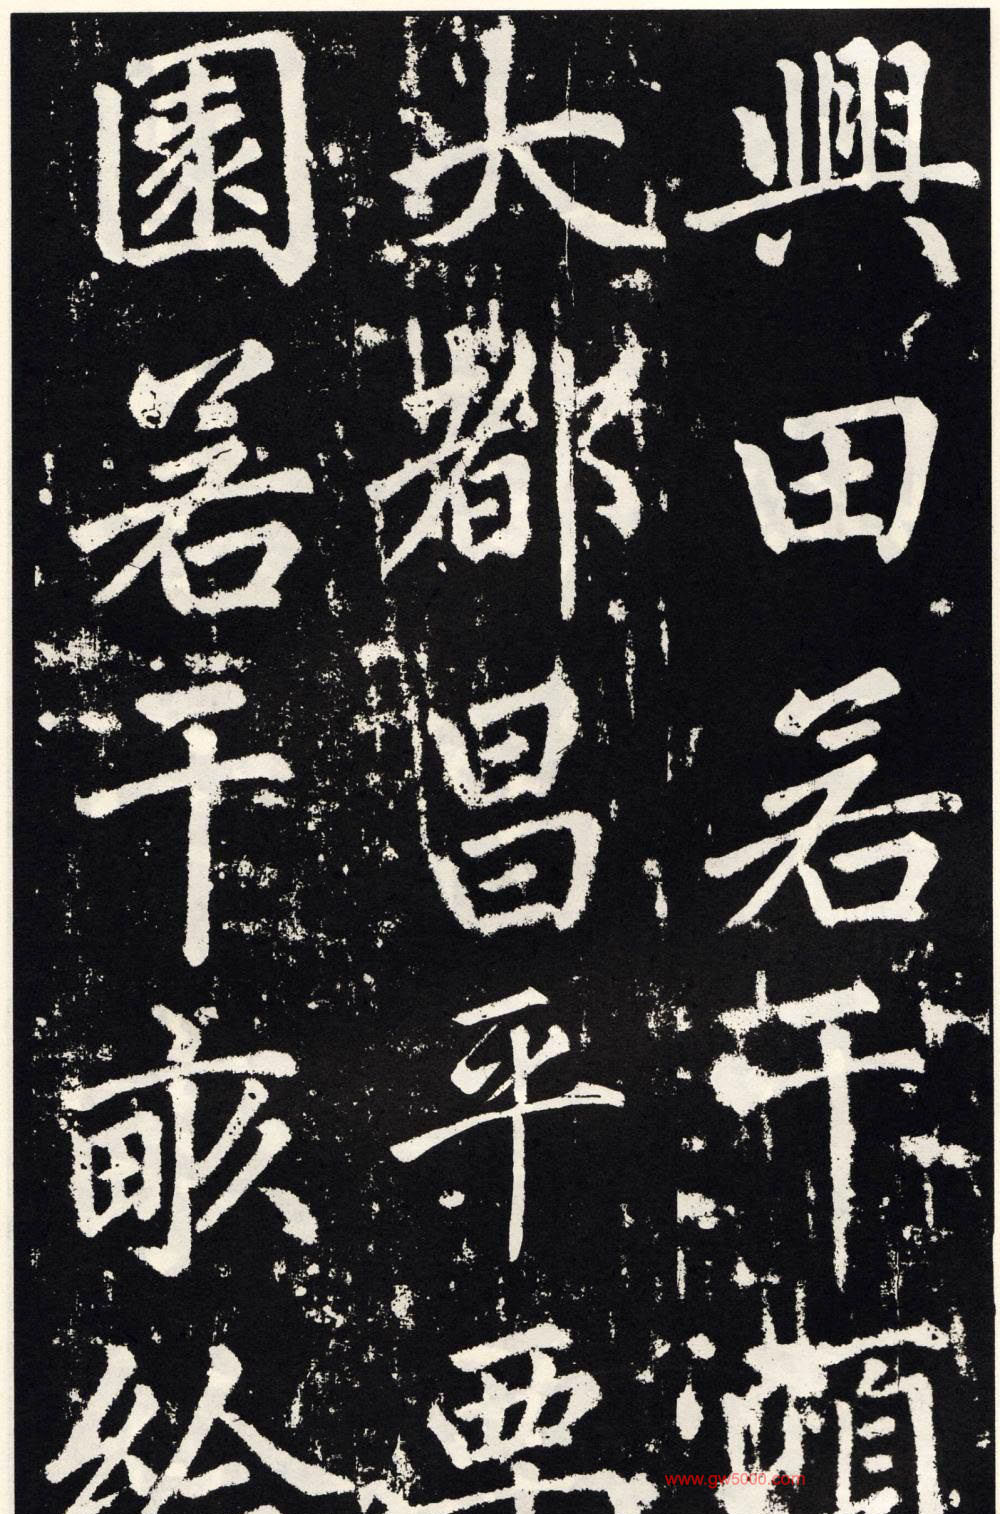 興田若干頃
大都昌平栗
園若干畝給
www.gw5000.com